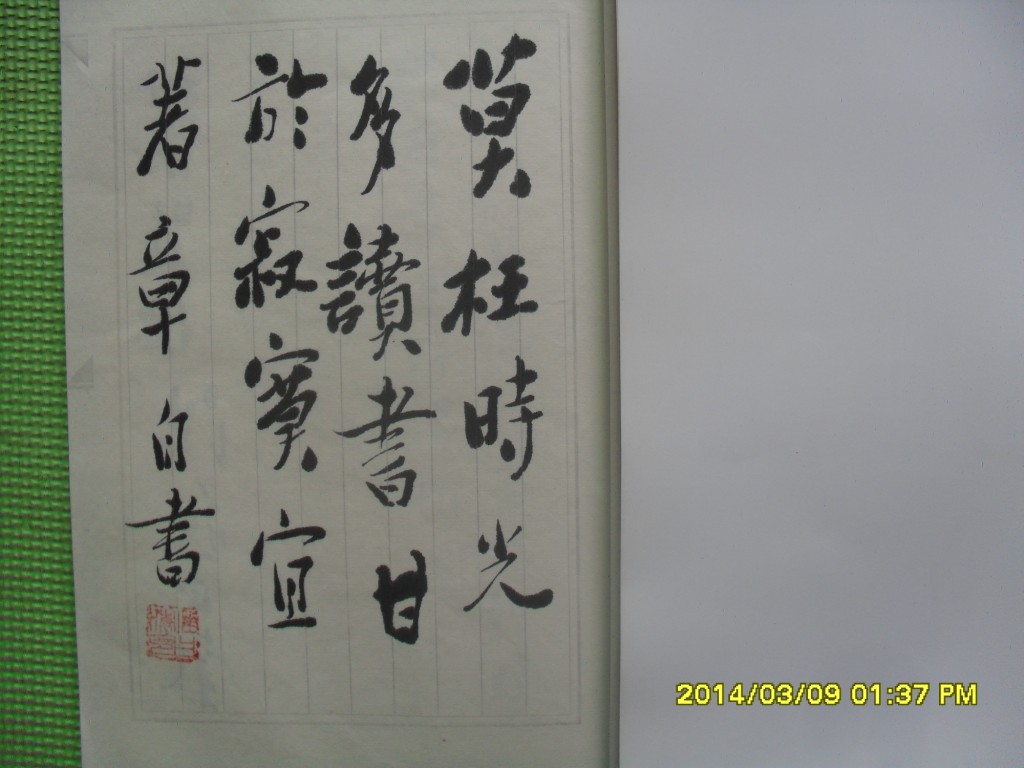 莫枉時光
多讀書甘
於寂寞宜
著章自書
2014/03/09 01:37 PM